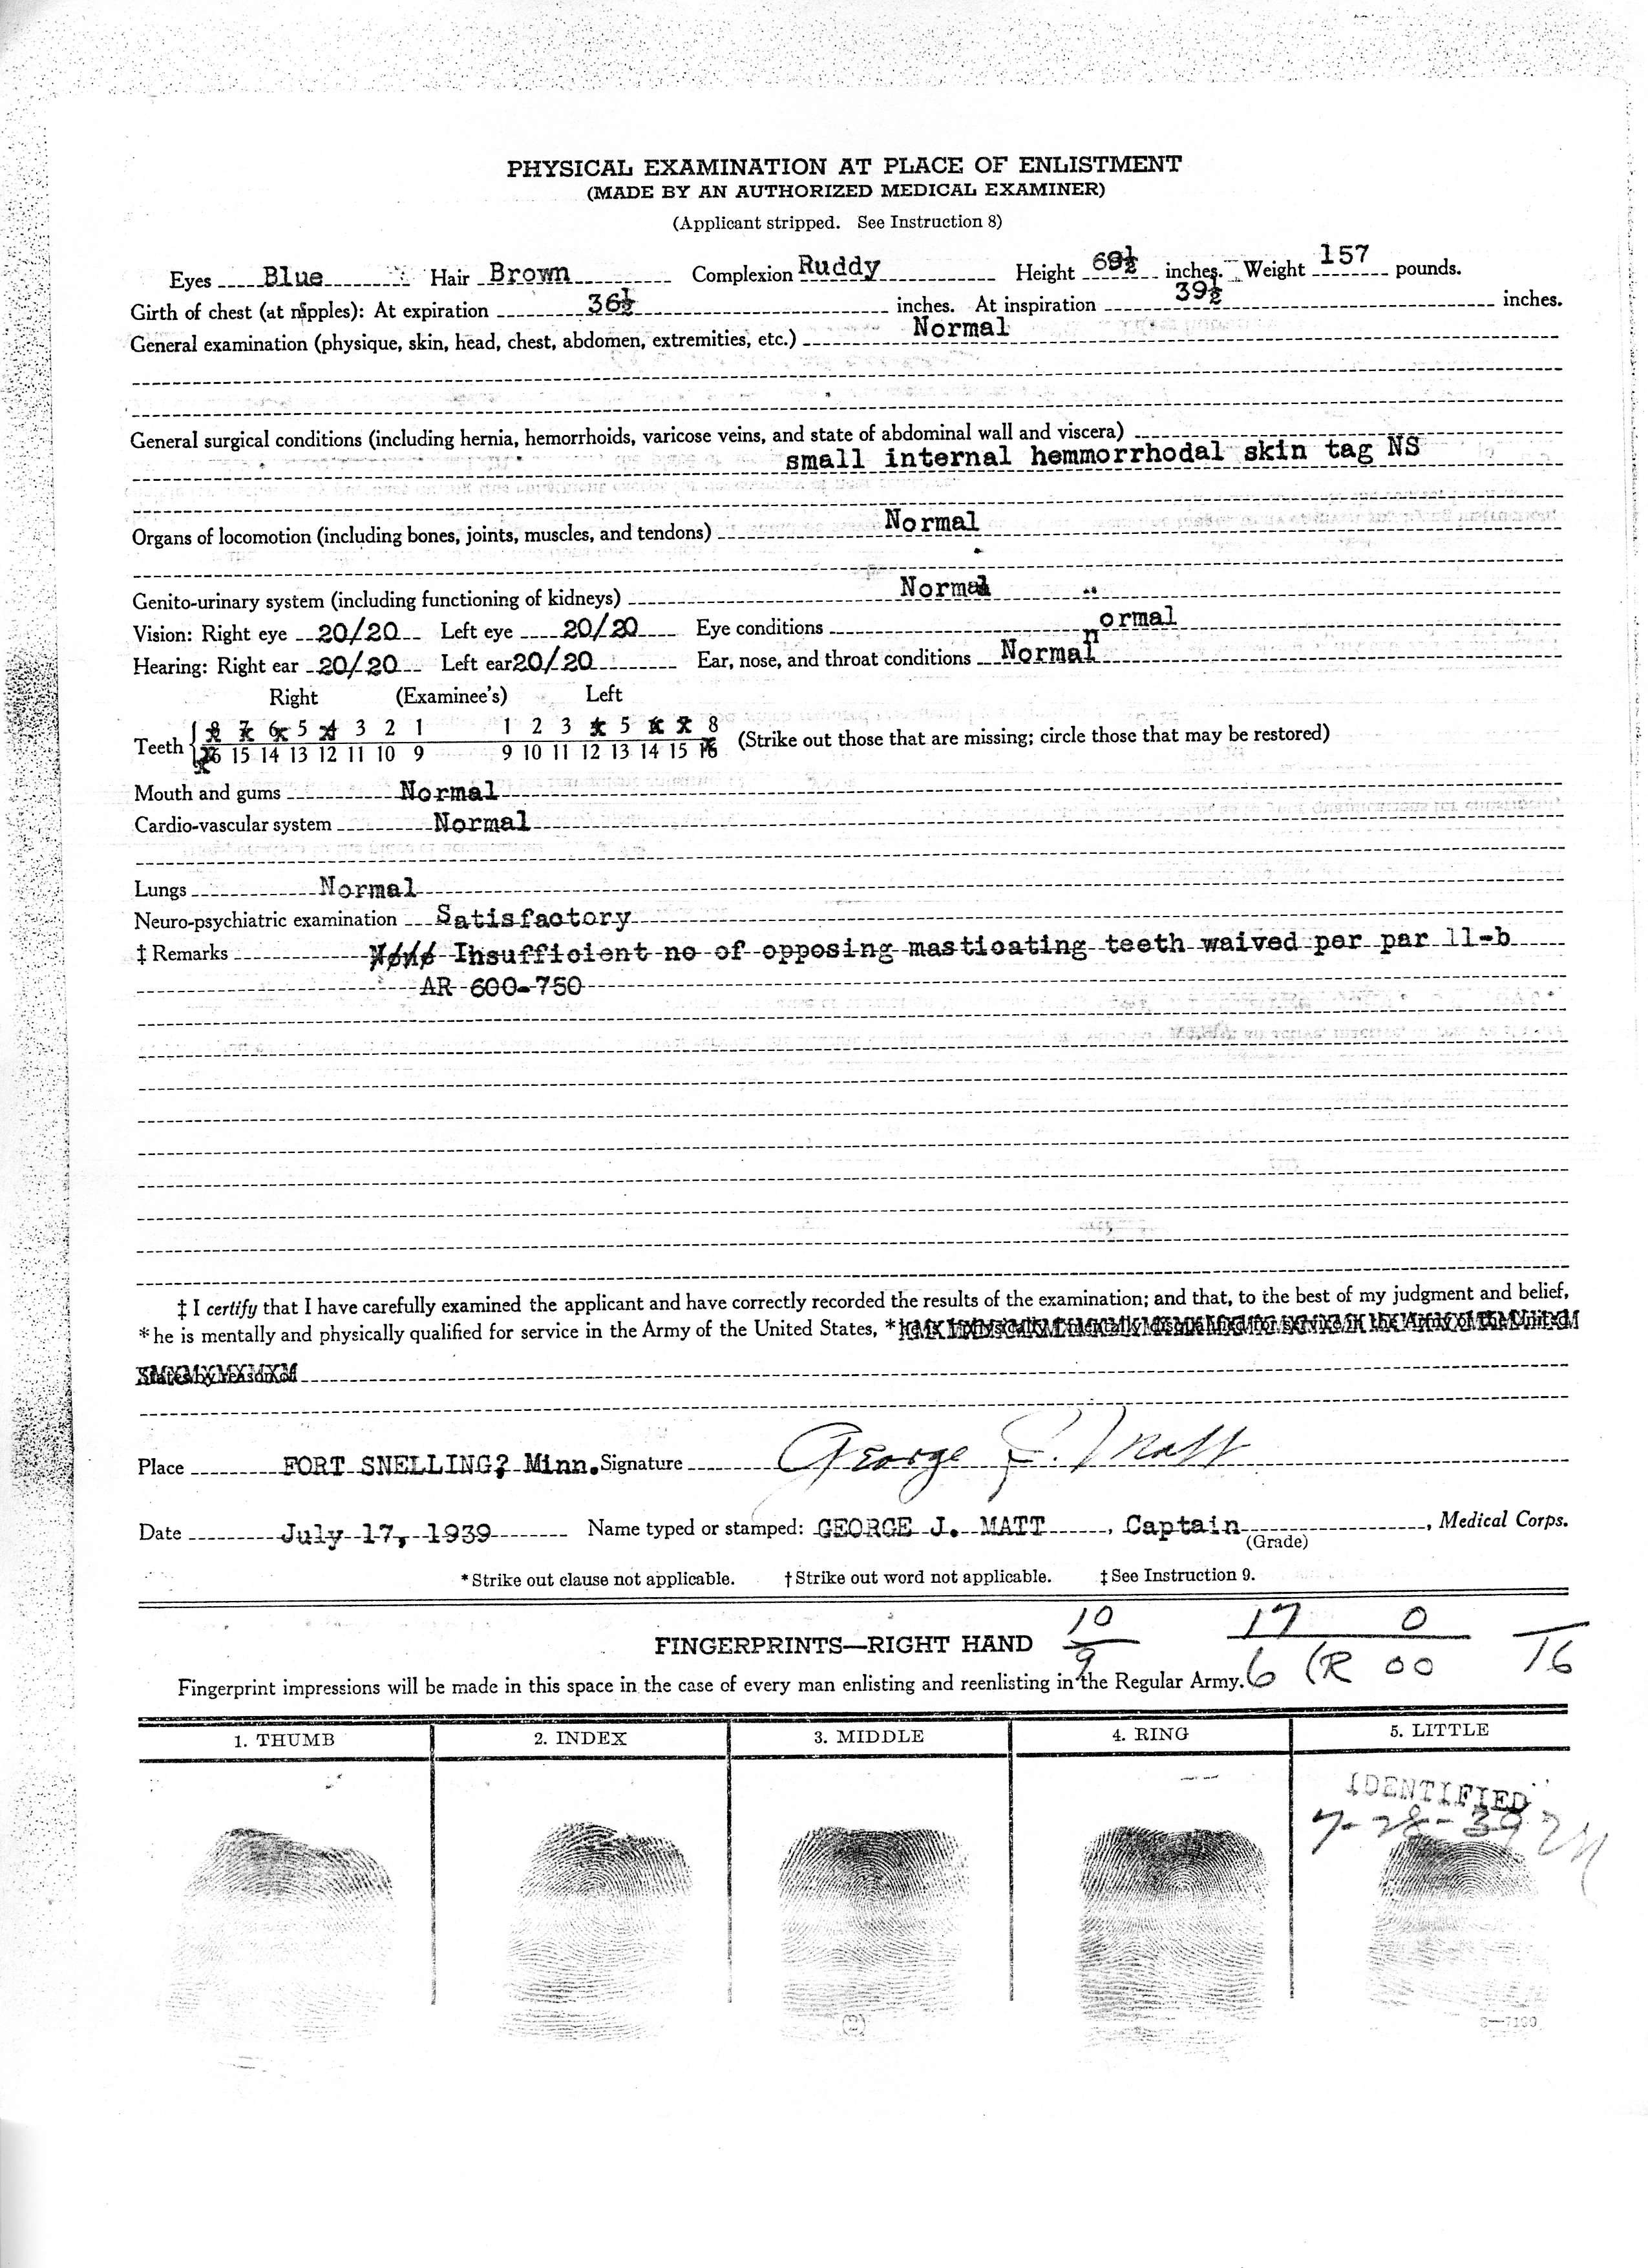 PHYSICAL EXAMINATION AT PLACE OF ENLISTMENT
(MADE BY AN AUTHORIZED MEDICAL EXAMINER)
(Applicant stripped. See Instruction 8)
Eyes Blue Hair Brown Complexion Ruddy Height 69½ inches. Weight 157 pounds.
Girth of chest (at nipples): At expiration 36½ inches. At inspiration 39½ inches.
General examination (physique, skin, head, chest, abdomen, extremities, etc.) Normal
General surgical conditions (including hernia, hemorrhoids, varicose veins, and state of abdominal wall and viscera)
small internal hemmorrhodal skin tag NS
Organs of locomotion (including bones, joints, muscles, and tendons) Normal
Genito-urinary system (including functioning of kidneys) Normal
Vision: Right eye 20/20 Left eye 20/20 Eye conditions normal
Hearing: Right ear 20/20 Left ear 20/20 Ear, nose, and throat conditions Normal
Right (Examinee's) Left
8 7 6 5 4 3 2 1 1 2 3 4 5 6 7 8
Teeth (Strike out those that are missing; circle those that may be restored)
16 15 14 13 12 11 10 9 9 10 11 12 13 14 15 16
Mouth and gums Normal
Cardio-vascular system Normal
Lungs Normal
Neuro-psychiatric examination Satisfactory
‡ Remarks None Insufficient no of opposing masticating teeth waived per par 11-b
AR 600-750
‡ I certify that I have carefully examined the applicant and have correctly recorded the results of the examination; and that, to the best of my judgment and belief,
* he is mentally and physically qualified for service in the Army of the United States, *
States by reason of
Place FORT SNELLING? Minn. Signature George J. Matt
Date July 17, 1939 Name typed or stamped: GEORGE J. MATT, Captain, Medical Corps.
(Grade)
* Strike out clause not applicable. † Strike out word not applicable. ‡ See Instruction 9.
10 17 0
FINGERPRINTS—RIGHT HAND
9 6 R 00 16
Fingerprint impressions will be made in this space in the case of every man enlisting and reenlisting in the Regular Army.
1. THUMB 2. INDEX 3. MIDDLE 4. RING 5. LITTLE
IDENTIFIED
7-28-39
(2)
3—7190